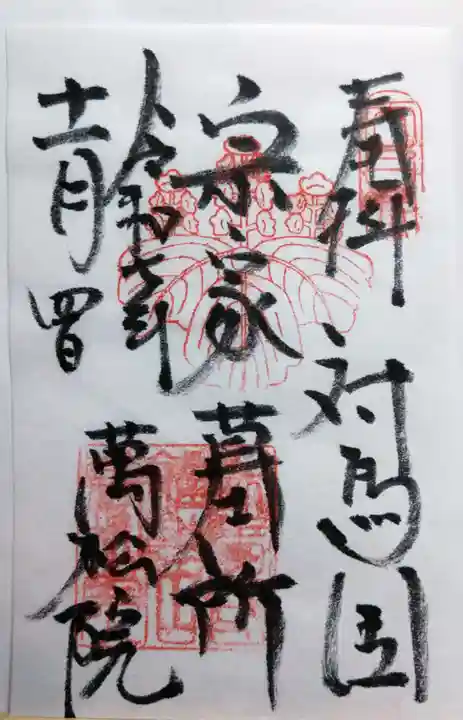 奉拝 対馬国
宗家墓所
令和七年
十一月四日
萬松院